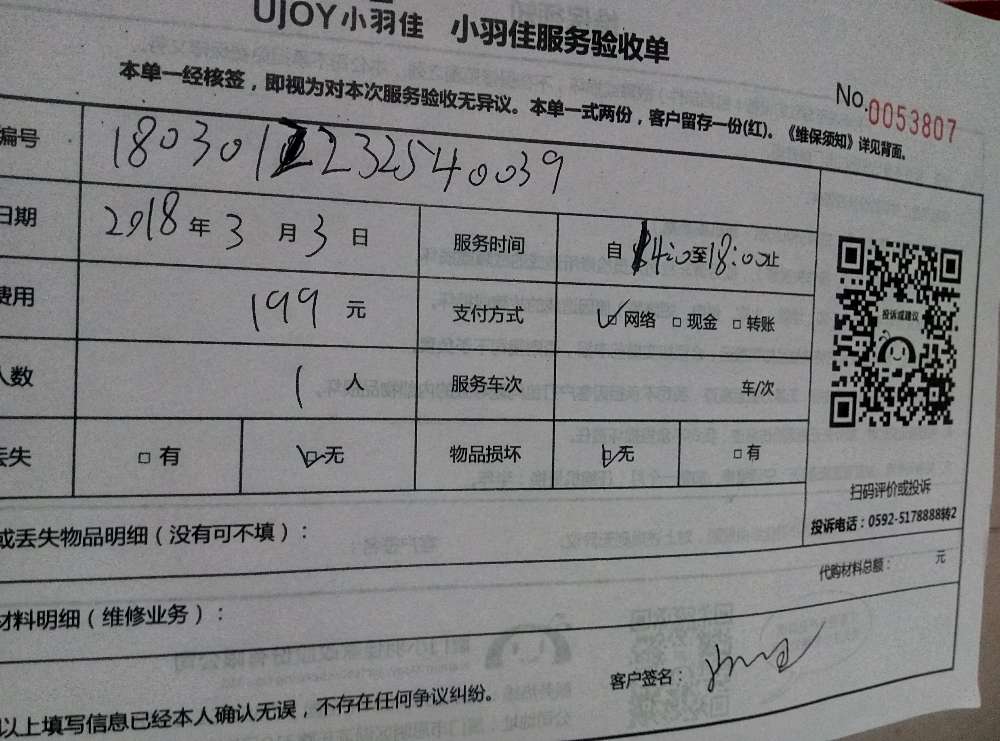 UJOY小羽佳 小羽佳服务验收单
No.0053807
本单一经核签，即视为对本次服务验收无异议。本单一式两份，客户留存一份(红)。《维保须知》详见背面。
编号 18030112232540039
日期 2018年3月3日 服务时间 自14:0至18:00止
费用 199元 支付方式 网络 现金 转账
人数 1人 服务车次 车/次
丢失 有 无 物品损坏 无 有
投诉或建议
扫码评价或投诉
投诉电话：0592-5178888转2
或丢失物品明细（没有可不填）：
代购材料总额： 元
材料明细（维修业务）：
客户签名：
以上填写信息已经本人确认无误，不存在任何争议纠纷。